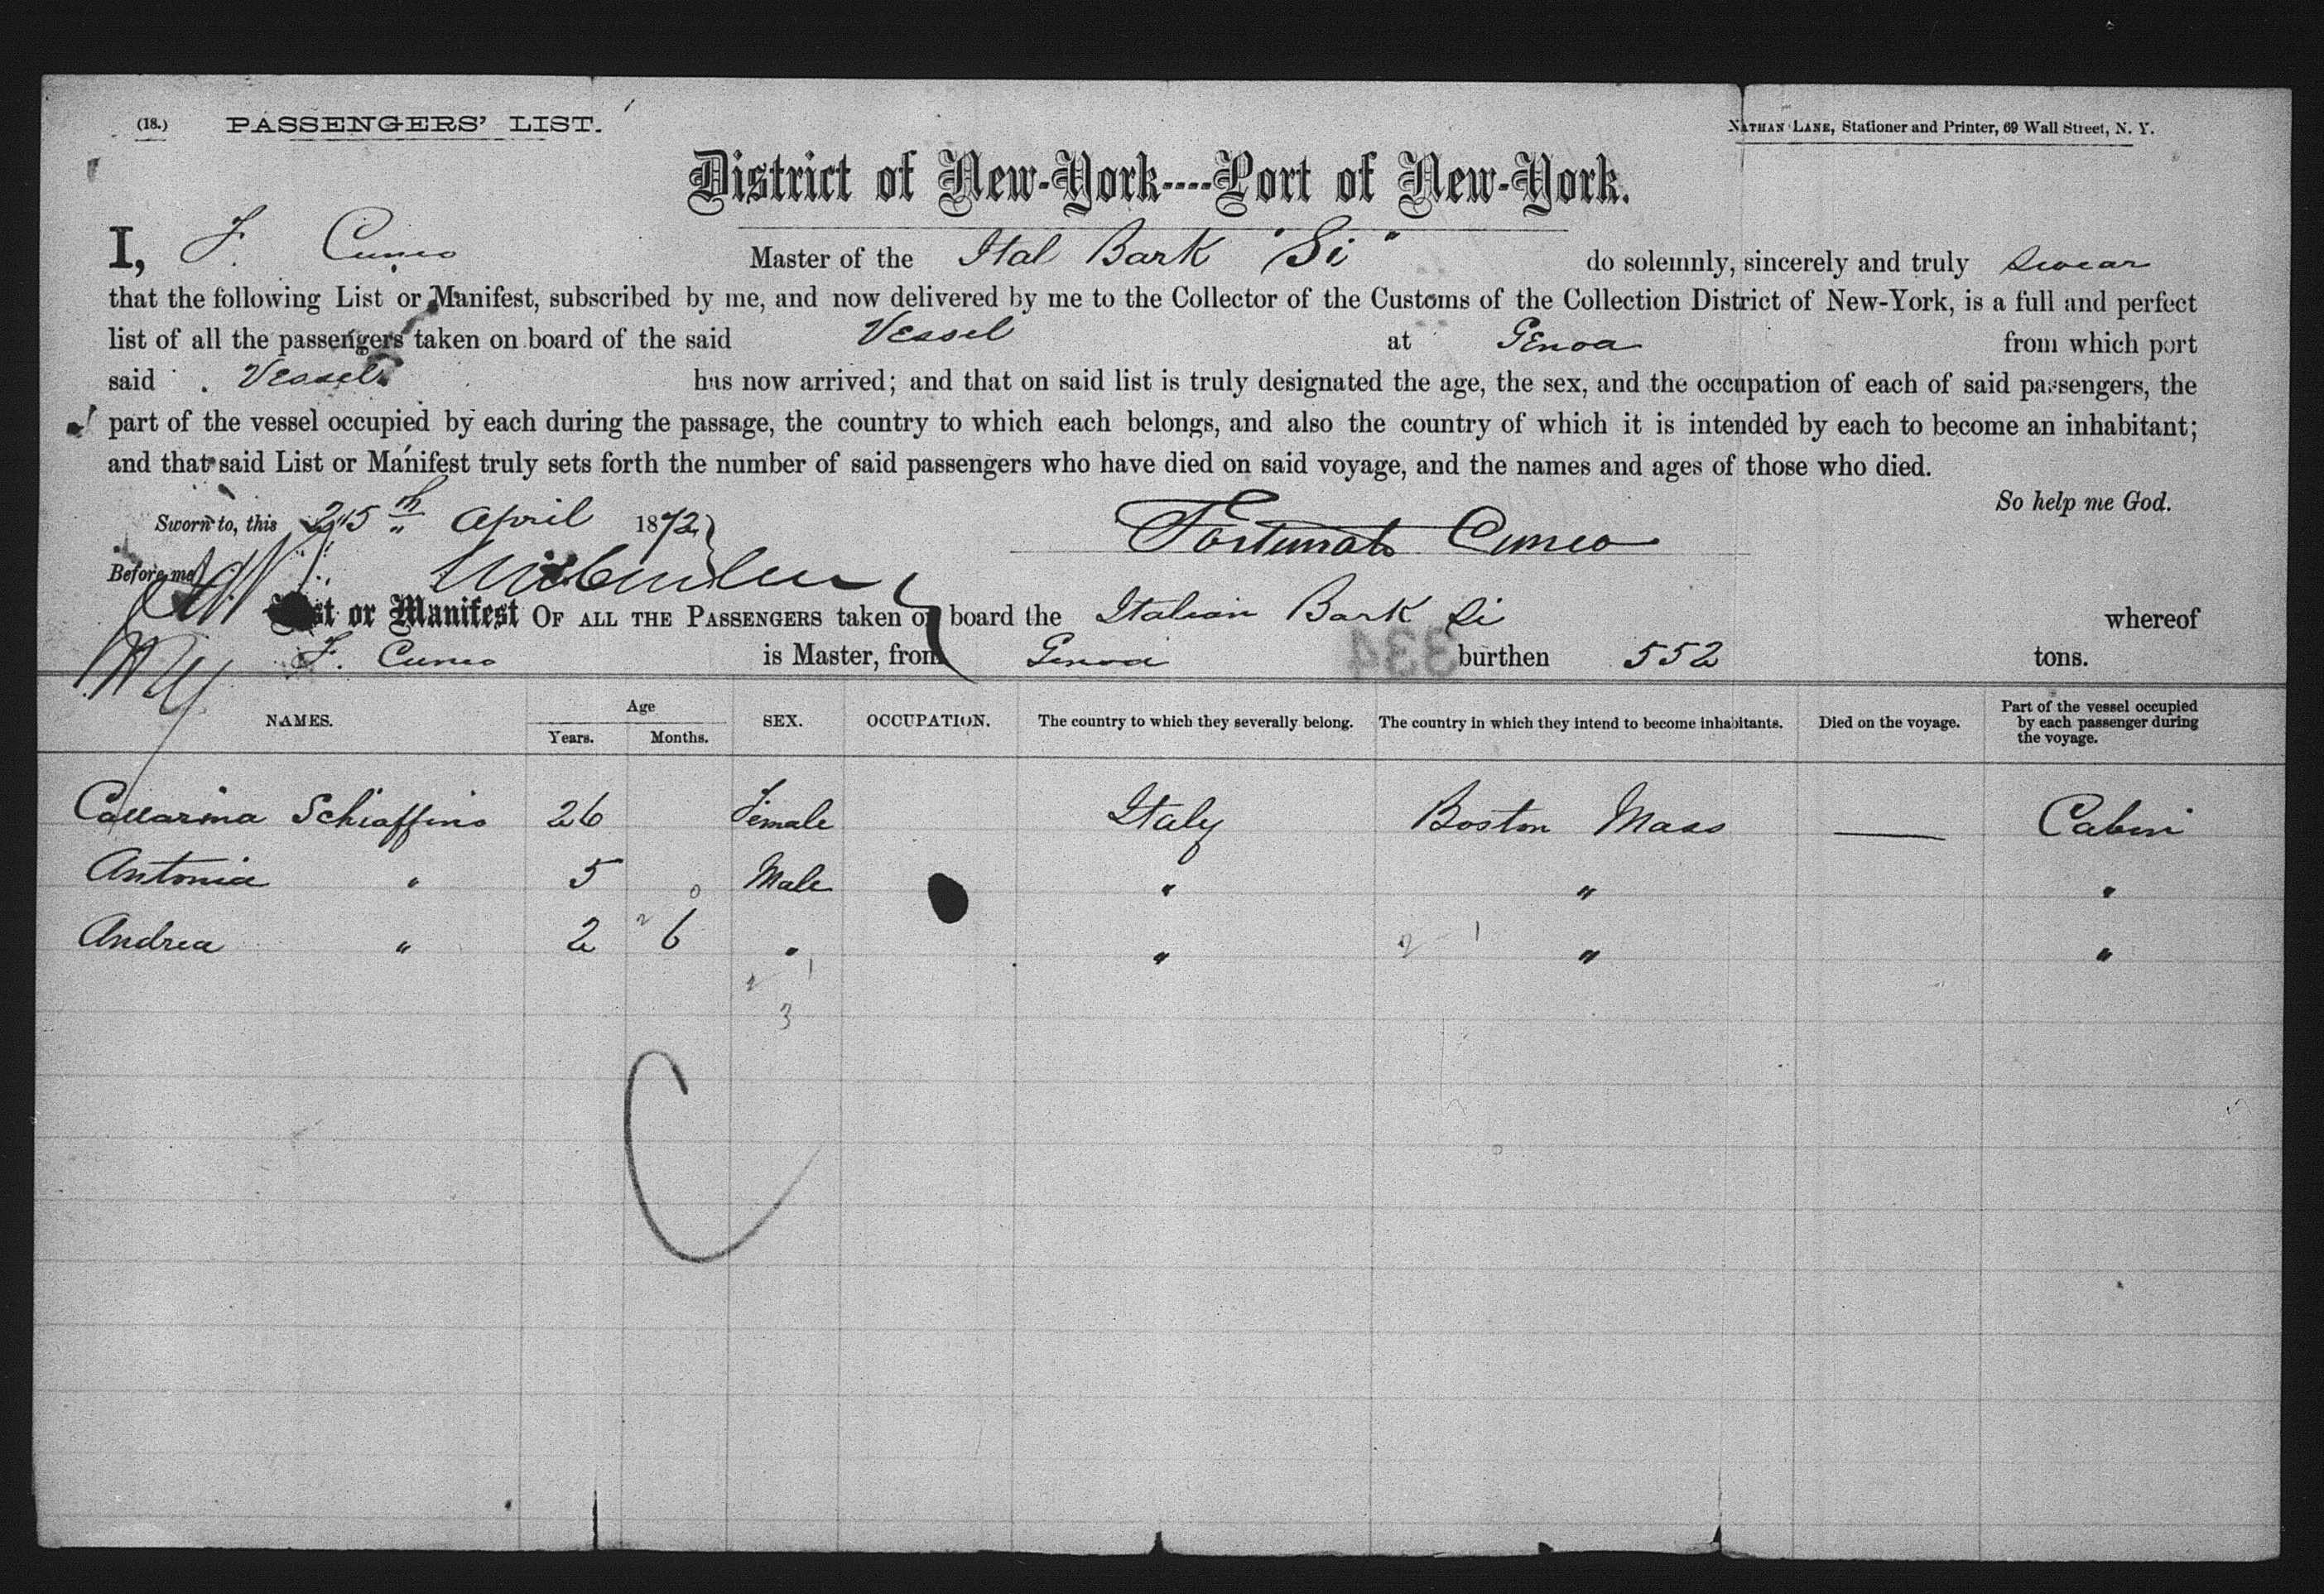 (18.) PASSENGERS' LIST. NATHAN LANE, Stationer and Printer, 69 Wall Street, N. Y.
District of New-York----Port of New-York.
I, F. Cuneo Master of the Ital Bark "Si" do solemnly, sincerely and truly swear
that the following List or Manifest, subscribed by me, and now delivered by me to the Collector of the Customs of the Collection District of New-York, is a full and perfect
list of all the passengers taken on board of the said Vessel at Genoa from which port
said Vessel has now arrived; and that on said list is truly designated the age, the sex, and the occupation of each of said passengers, the
part of the vessel occupied by each during the passage, the country to which each belongs, and also the country of which it is intended by each to become an inhabitant;
and that said List or Manifest truly sets forth the number of said passengers who have died on said voyage, and the names and ages of those who died.
So help me God.
Sworn to, this 25th April 1872 Fortunato Cuneo
Before me
List or Manifest OF ALL THE PASSENGERS taken on board the Italian Bark Si whereof
F. Cuneo is Master, from Genoa burthen 552 tons.
334
NAMES. Age Years. Months. SEX. OCCUPATION. The country to which they severally belong. The country in which they intend to become inhabitants. Died on the voyage. Part of the vessel occupied by each passenger during the voyage.
Schiaffino 26 Female Italy Boston Mass — Cabin
Antonia " 5 0 Male " " "
Andrea " 2 6 " " " "
2 1
2 1
3
C